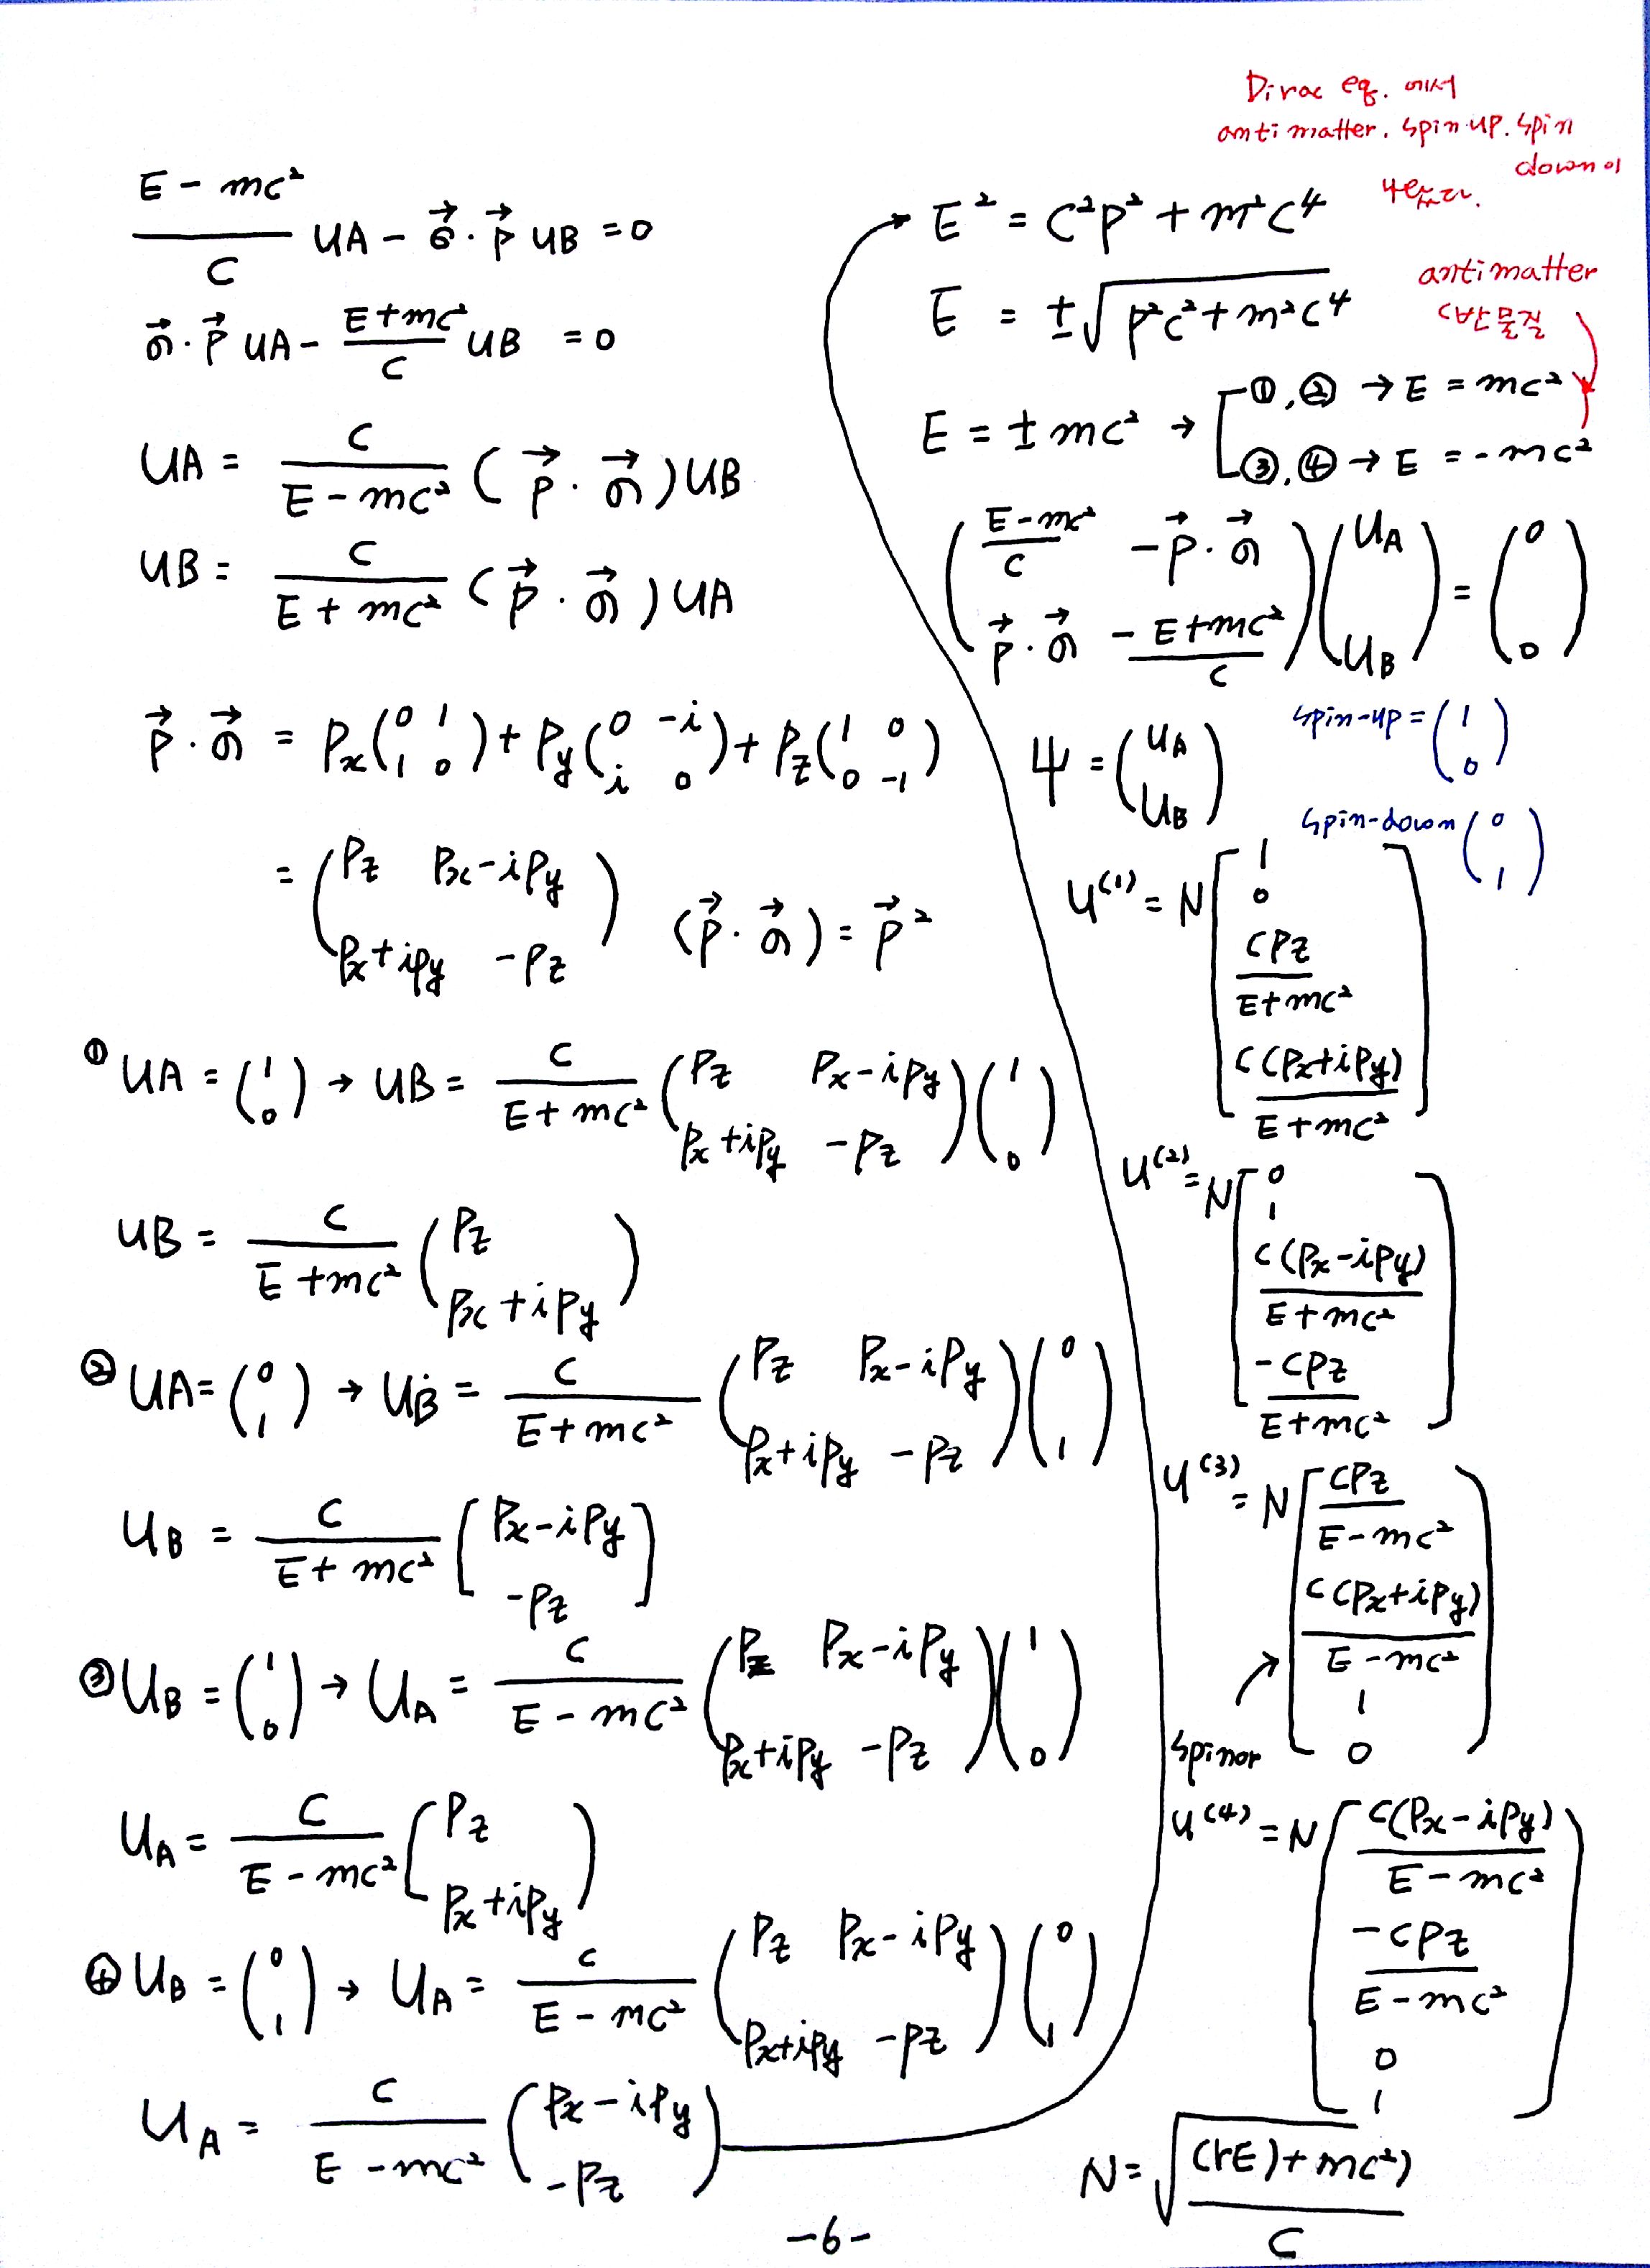 E - mc² / C uA - σ⃗·p⃗ uB = 0
σ⃗·p⃗ uA - E+mc² / C uB = 0
uA = C / E - mc² (p⃗·σ⃗)uB
uB = C / E + mc² (p⃗·σ⃗)uA
p⃗·σ⃗ = Px(0 1 / 1 0) + Py(0 -i / i 0) + Pz(1 0 / 0 -1)
= (Pz Px-iPy / Px+iPy -Pz) (p⃗·σ⃗) = p⃗²
① uA = (1 / 0) → uB = C / E + mc² (Pz Px-iPy / Px+iPy -Pz)(1 / 0)
uB = C / E + mc² (Pz / Px+iPy)
② uA = (0 / 1) → uB = C / E + mc² (Pz Px-iPy / Px+iPy -Pz)(0 / 1)
uB = C / E + mc² [Px-iPy / -Pz]
③ uB = (1 / 0) → uA = C / E - mc² (Pz Px-iPy / Px+iPy -Pz)(1 / 0)
uA = C / E - mc² [Pz / Px+iPy)
④ uB = (0 / 1) → uA = C / E - mc² (Pz Px-iPy / Px+iPy -Pz)(0 / 1)
uA = C / E - mc² (Px-iPy / -Pz)
Dirac eq. 에서
antimatter. spin-up. spin
down이
E² = C²P² + m²C⁴
E = ±√P²C²+m²C⁴
antimatter
(반물질
E = ± mc² → ①,② → E = mc²
③,④ → E = -mc²
(E-mc² / C -p⃗·σ⃗ / p⃗·σ⃗ -E+mc² / C)(uA / uB) = (0 / 0)
ψ = (uA / uB)
spin-up = (1 / 0)
spin-down (0 / 1)
u⁽¹⁾ = N[1 / 0 / CPz / E+mc² / C(Px+iPy) / E+mc²]
u⁽²⁾ = N[0 / 1 / C(Px-iPy) / E+mc² / -CPz / E+mc²]
u⁽³⁾ = N[CPz / E-mc² / C(Px+iPy) / E-mc² / 1 / 0]
spinor
u⁽⁴⁾ = N[C(Px-iPy) / E-mc² / -CPz / E-mc² / 0 / 1]
N = √(rE)+mc²) / C
-6-